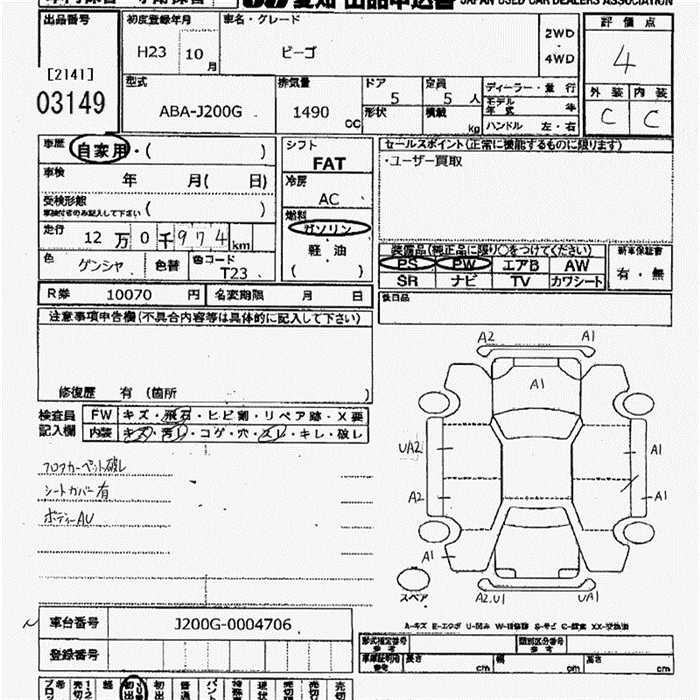 愛知 出品申込書 JAPAN USED CAR DEALERS ASSOCIATION
出品番号 初度登録年月 車名・グレード 評価点
H23 10月 ビーゴ 2WD 4WD 4
[2141]
03149
型式 排気量 ドア 定員 ディーラー・並行 外装 内装
ABA-J200G 1490 CC 5 5人 モデル年式 年 C C
形状 積載 kg ハンドル 左・右
車歴 自家用・( ) シフト セールスポイント(正常に機能するものに限ります)
FAT ・ユーザー買取
車検 年 月( 日) 冷房
AC
受検形態
車検付きのみ記入して下さい ( ) 燃料
ガソリン
走行 12万0千974km 軽・油
( )
装備品(純正品に限り○をつけてください) 新車保証書
色 ゲンシヤ 色替 色コード T23 PS PW エアB AW 有・無
SR ナビ TV カワシート
R券 10070円 名変期限 月 日
注意事項申告欄(不具合内容等は具体的に記入して下さい)
修復歴 有 (箇所 )
検査員記入欄 FW キズ・飛石・ヒビ割・リペア跡・X要
内装 キズ・汚レ・コゲ・穴・スレ・キレ・破レ
フロアカーペット破レ
シートカバー有
ボディーAU
A2 A1
A1
UA2 A1
A2 A1
A1
スペア A2.U1 UA1
車台番号 J200G-0004706
登録番号
型式指定番号 類別区分番号
参考 参考
車庫証明用 参考 長さ cm 幅 cm 高さ cm